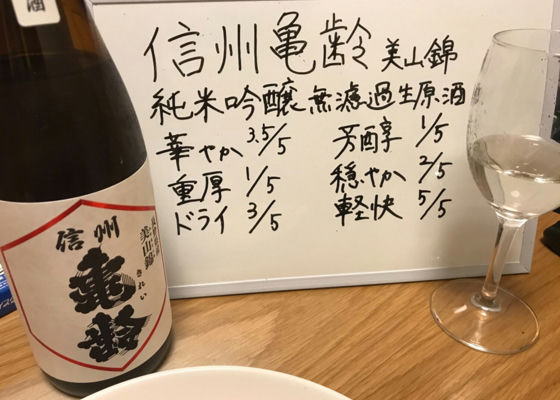 酒
信州亀齢 美山錦
純米吟醸無濾過生原酒
華やか 3.5/5 芳醇 1/5
重厚 1/5 穏やか 2/5
ドライ 3/5 軽快 5/5
信州
美山錦
亀齢
きれい